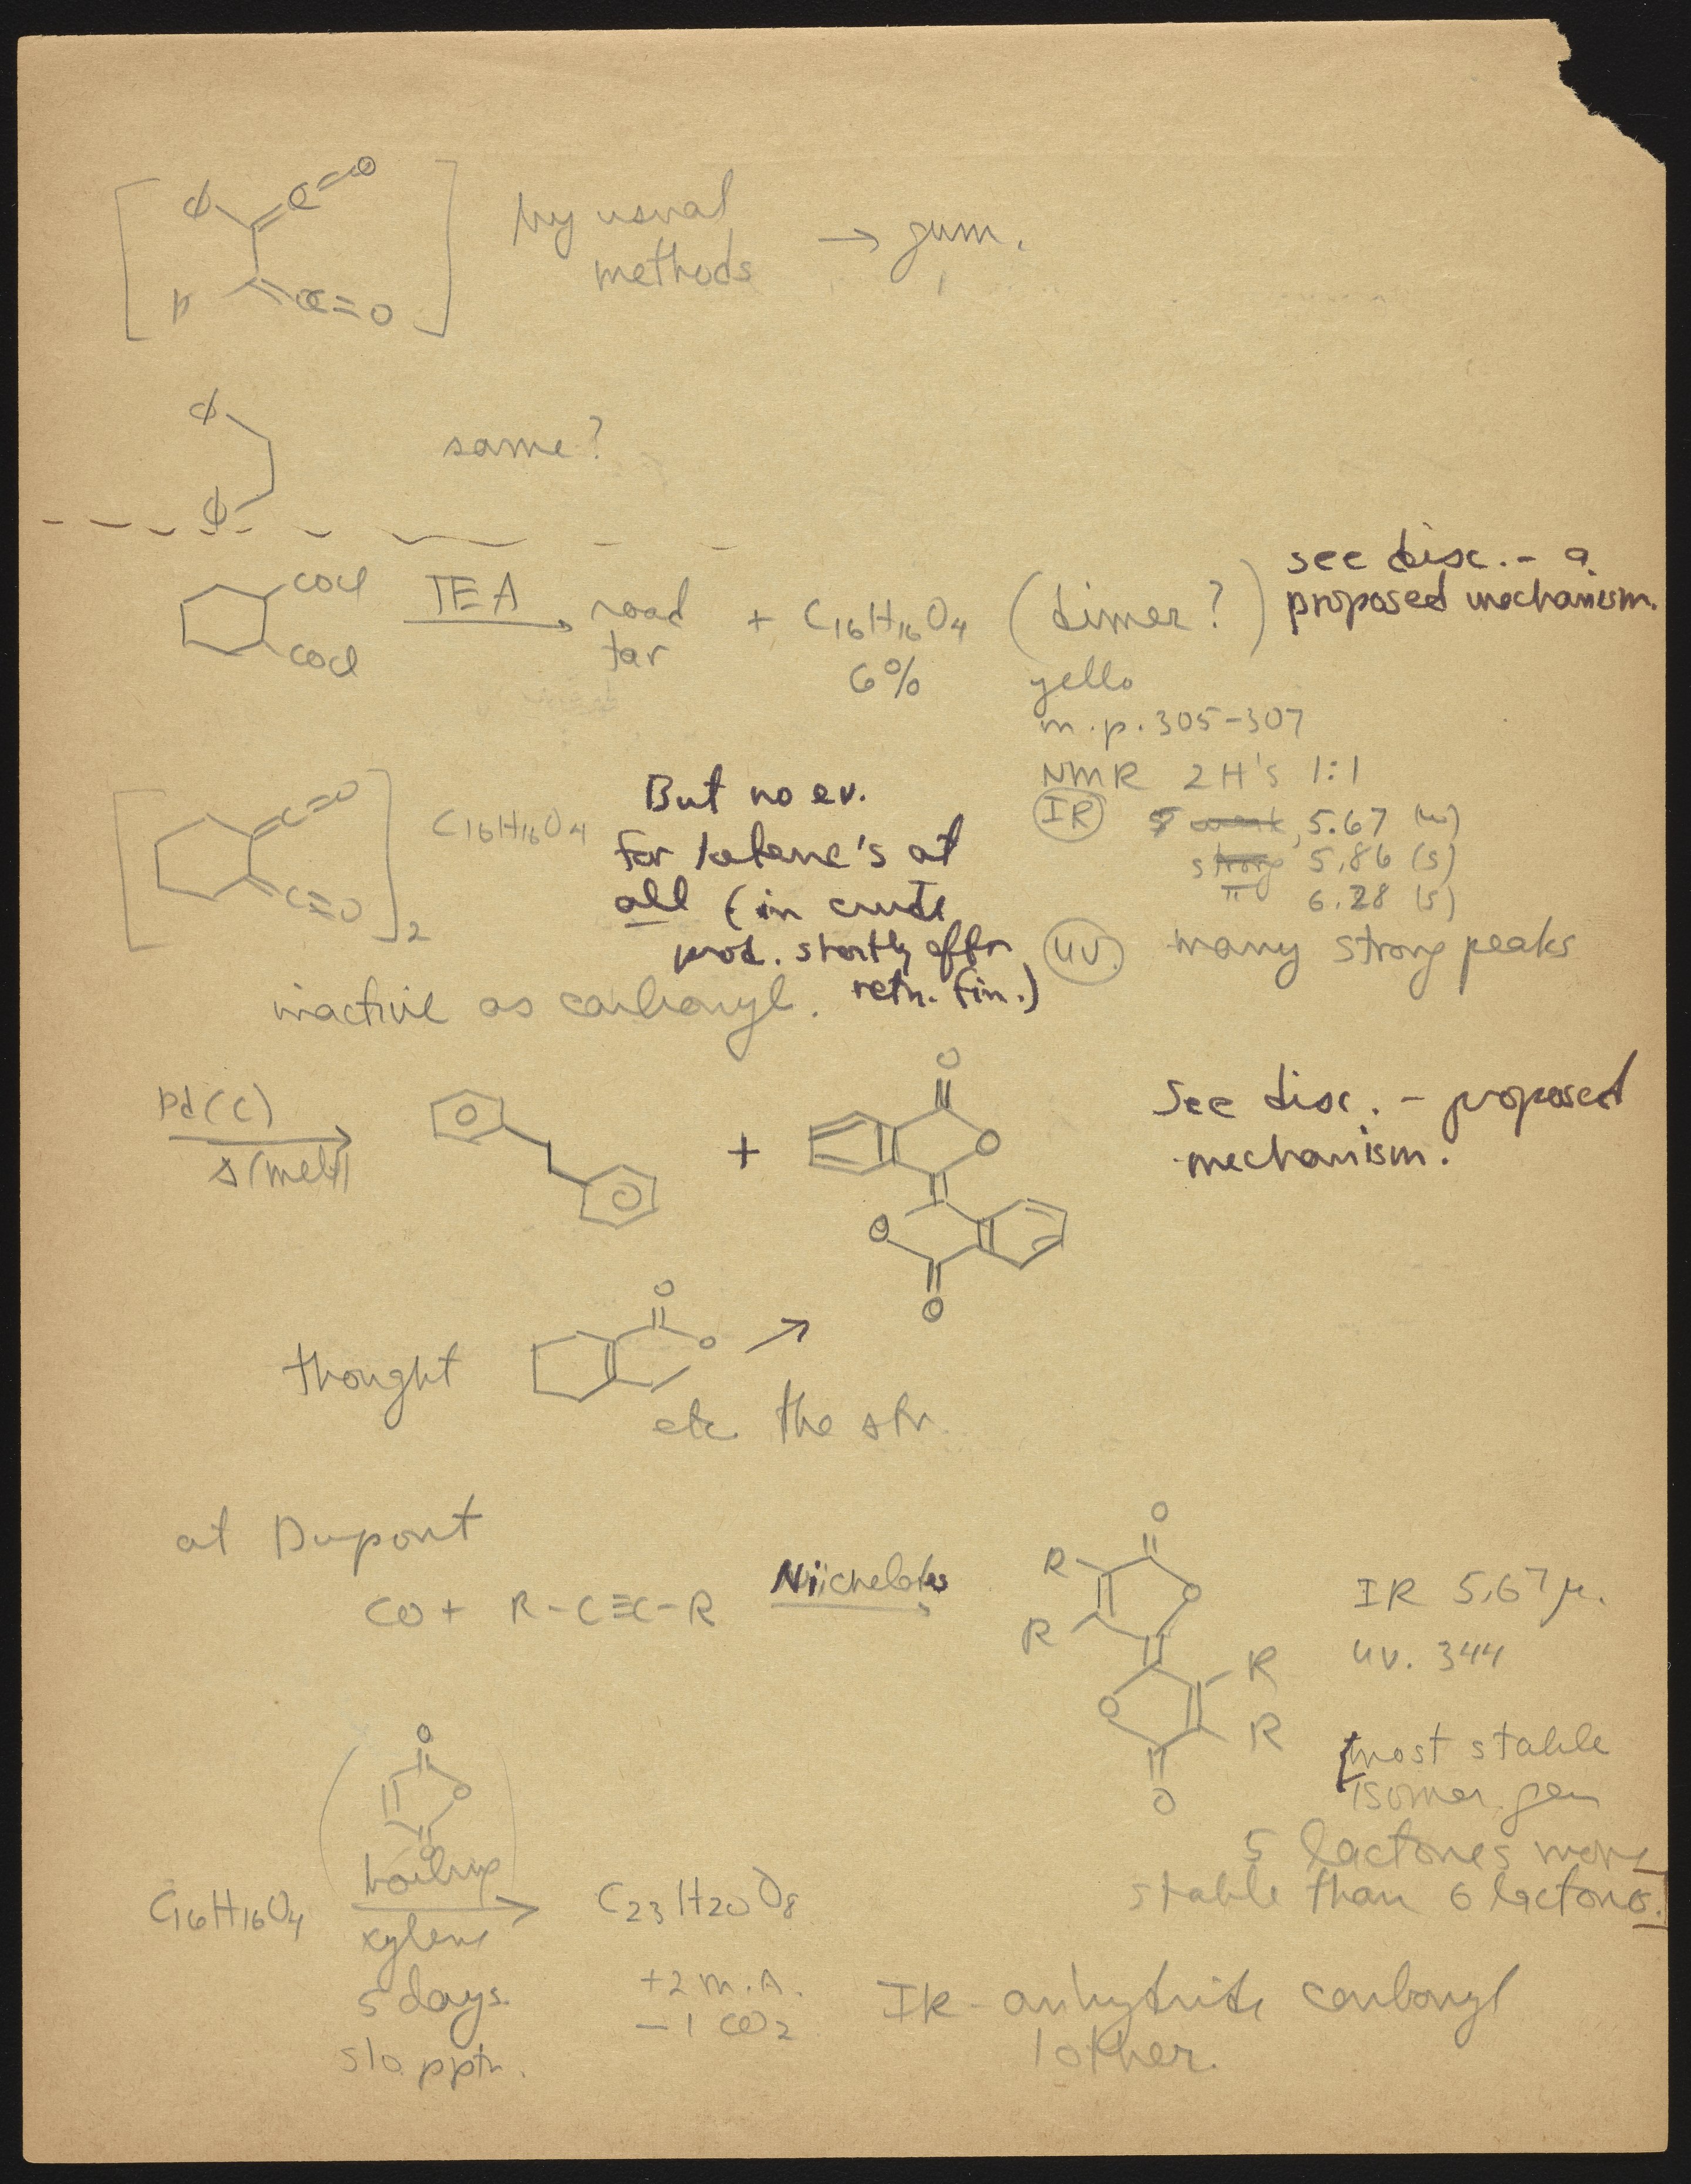 Φ C=O
by usual
methods → gum.
C=O
Φ
same?
Φ
see disc. - a
proposed mechanism.
COCl TEA road + C16H16O4 (dimer?)
COCl tar 6% yello
m.p. 305-307
NMR 2H's 1:1
IR 5.67 (w)
strong 5.86 (s)
" 6.28 (s)
UV. many strong peaks
C=O
C=O
2
C16H16O4
But no ev.
for ketene's at
all (in crude
prod. shortly after
retn. fin.)
inactive as carbonyl.
Pd(C)
Δ(melt)
+
O
O
O
O
See disc. - proposed
mechanism.
thought
O
O
→
etc the str.
at Dupont
CO + R-C≡C-R Ni chelates
O
R
O
R
R
O
R
O
IR 5.67 μ.
UV. 344
[most stable
isomer gen
5 lactones more
stable than 6 lactono.]
O
O
O
C16H16O4 boiling → C23H20O8
xylene
5 days.
slo pptn.
+2 M.A.
-1 CO2
IR - anhydride carbonyl
1 other.